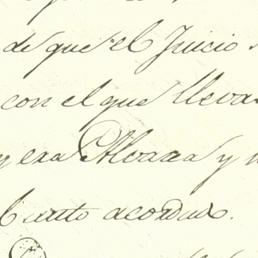 de que el Juicio
con el que lleva
era Alvara y
auto acordado.